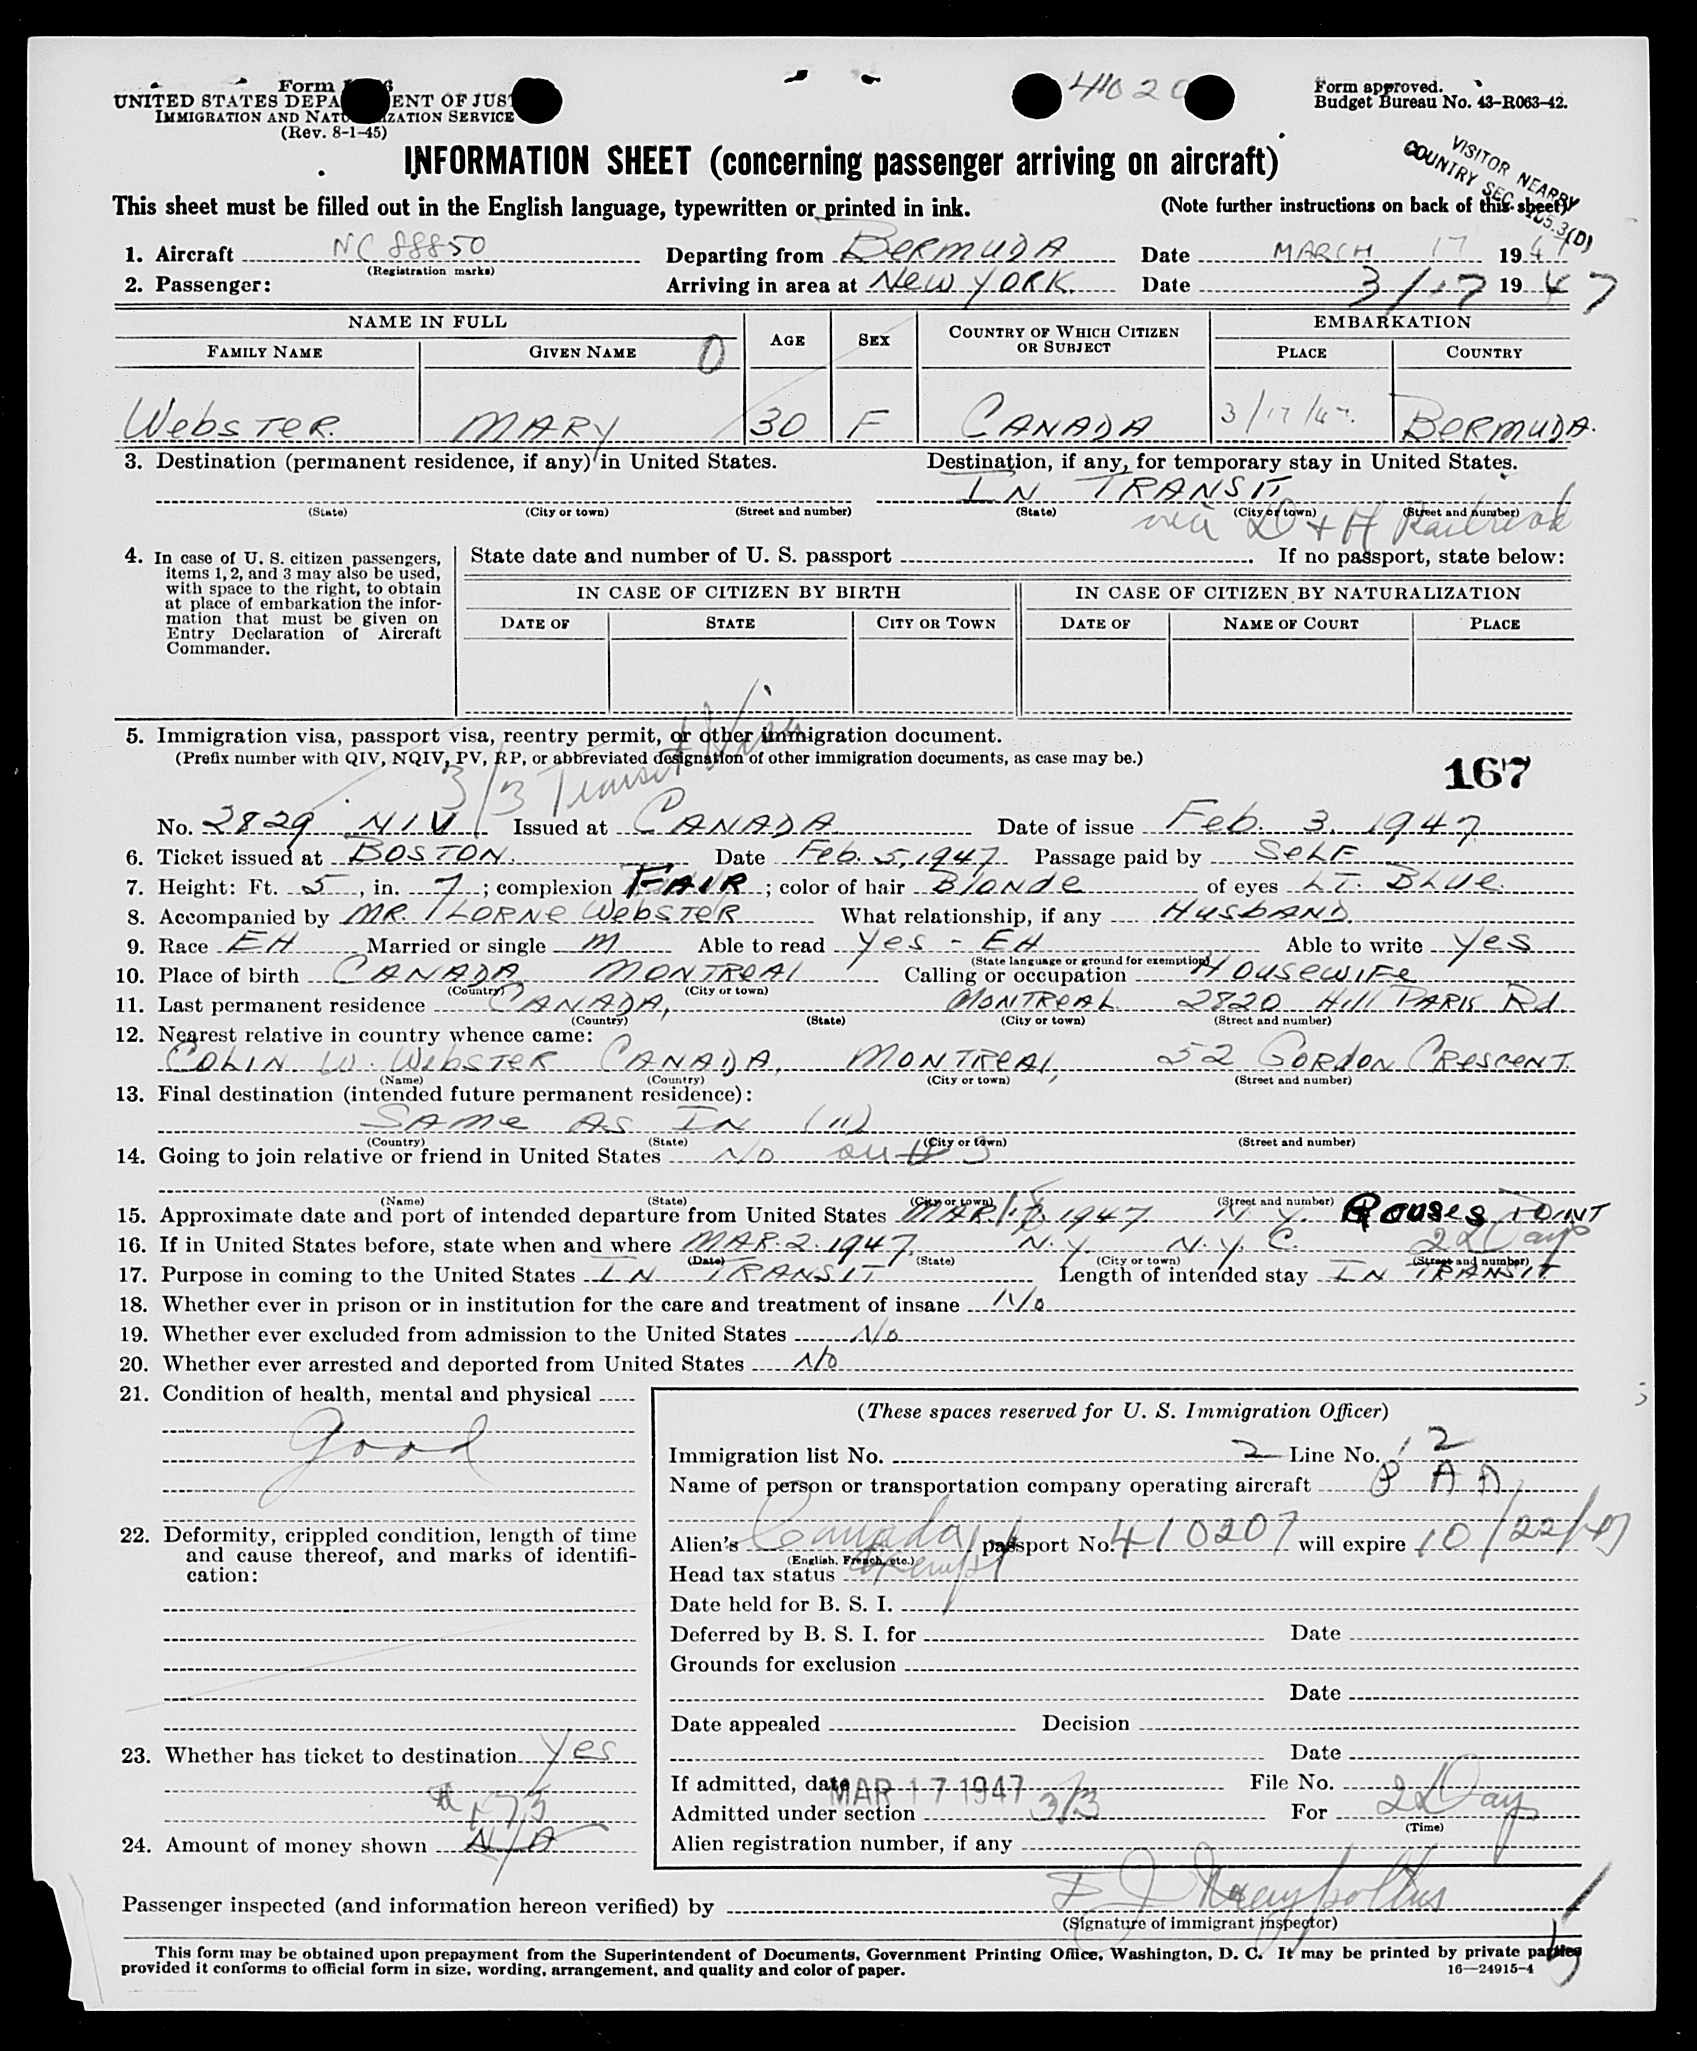 4102
Form
UNITED STATES DEPA ENT OF JUS
IMMIGRATION AND NATU ZATION SERVICE
(Rev. 8-1-45)
Form approved.
Budget Bureau No. 43-R063-42.
VISITOR NEARBY
COUNTRY SEC. 165.3(D)
INFORMATION SHEET (concerning passenger arriving on aircraft)
This sheet must be filled out in the English language, typewritten or printed in ink. (Note further instructions on back of this sheet)
1. Aircraft NC 88850 Departing from BERMUDA Date MARCH 17 1947
(Registration marks)
2. Passenger: Arriving in area at NEW YORK Date 3/17 1947
NAME IN FULL AGE SEX COUNTRY OF WHICH CITIZEN OR SUBJECT EMBARKATION
FAMILY NAME GIVEN NAME 0 PLACE COUNTRY
WEBSTER MARY 30 F CANADA 3/17/47. BERMUDA.
3. Destination (permanent residence, if any) in United States. Destination, if any, for temporary stay in United States.
IN TRANSIT
(State) (City or town) (Street and number) (State) (City or town) (Street and number)
via D + H Railroad
4. In case of U. S. citizen passengers, items 1, 2, and 3 may also be used, with space to the right, to obtain at place of embarkation the information that must be given on Entry Declaration of Aircraft Commander.
State date and number of U. S. passport . If no passport, state below:
IN CASE OF CITIZEN BY BIRTH IN CASE OF CITIZEN BY NATURALIZATION
DATE OF STATE CITY OR TOWN DATE OF NAME OF COURT PLACE
5. Immigration visa, passport visa, reentry permit, or other immigration document.
(Prefix number with QIV, NQIV, PV, RP, or abbreviated designation of other immigration documents, as case may be.)
3/3 Transit Visa
167
No. 2829 NIV Issued at CANADA Date of issue Feb. 3, 1947
6. Ticket issued at BOSTON. Date Feb. 5, 1947 Passage paid by SELF
7. Height: Ft. 5, in. 7; complexion FAIR; color of hair BLONDE of eyes LT. BLUE.
8. Accompanied by MR. THORNE WEBSTER What relationship, if any HUSBAND.
9. Race EH Married or single M Able to read Yes - EH Able to write Yes
(State language or ground for exemption)
10. Place of birth CANADA MONTREAL Calling or occupation HOUSEWIFE
(Country) (City or town)
11. Last permanent residence CANADA, MONTREAL 2820 HILL PARK Rd.
(Country) (State) (City or town) (Street and number)
12. Nearest relative in country whence came:
COLIN W. WEBSTER CANADA, MONTREAL, 52 GORDON CRESCENT.
(Name) (Country) (City or town) (Street and number)
13. Final destination (intended future permanent residence):
SAME AS IN (11)
(Country) (State) (City or town) (Street and number)
14. Going to join relative or friend in United States No
(Name) (State) (City or town) (Street and number)
15. Approximate date and port of intended departure from United States MAR. 18 1947 N.Y. Rouses POINT
16. If in United States before, state when and where MAR. 2. 1947. N.Y. N.Y.C. 2 Days
(Date) (State) (City or town) (Street and number)
17. Purpose in coming to the United States IN TRANSIT Length of intended stay IN TRANSIT
18. Whether ever in prison or in institution for the care and treatment of insane No
19. Whether ever excluded from admission to the United States No
20. Whether ever arrested and deported from United States No
21. Condition of health, mental and physical
good
22. Deformity, crippled condition, length of time and cause thereof, and marks of identification:
23. Whether has ticket to destination Yes
24. Amount of money shown N/A
(These spaces reserved for U. S. Immigration Officer)
Immigration list No. 2 Line No. 2
Name of person or transportation company operating aircraft P A A
Alien's Canada passport No. 410207 will expire 10/22/49
(English, French, etc.)
Head tax status Exempt
Date held for B. S. I.
Deferred by B. S. I. for Date
Grounds for exclusion
Date
Date appealed Decision
Date
If admitted, date MAR 17 1947 File No.
Admitted under section 3/3 For 2 Days
(Time)
Alien registration number, if any
Passenger inspected (and information hereon verified) by
(Signature of immigrant inspector)
This form may be obtained upon prepayment from the Superintendent of Documents, Government Printing Office, Washington, D. C. It may be printed by private parties
provided it conforms to official form in size, wording, arrangement, and quality and color of paper. 16—24915-4